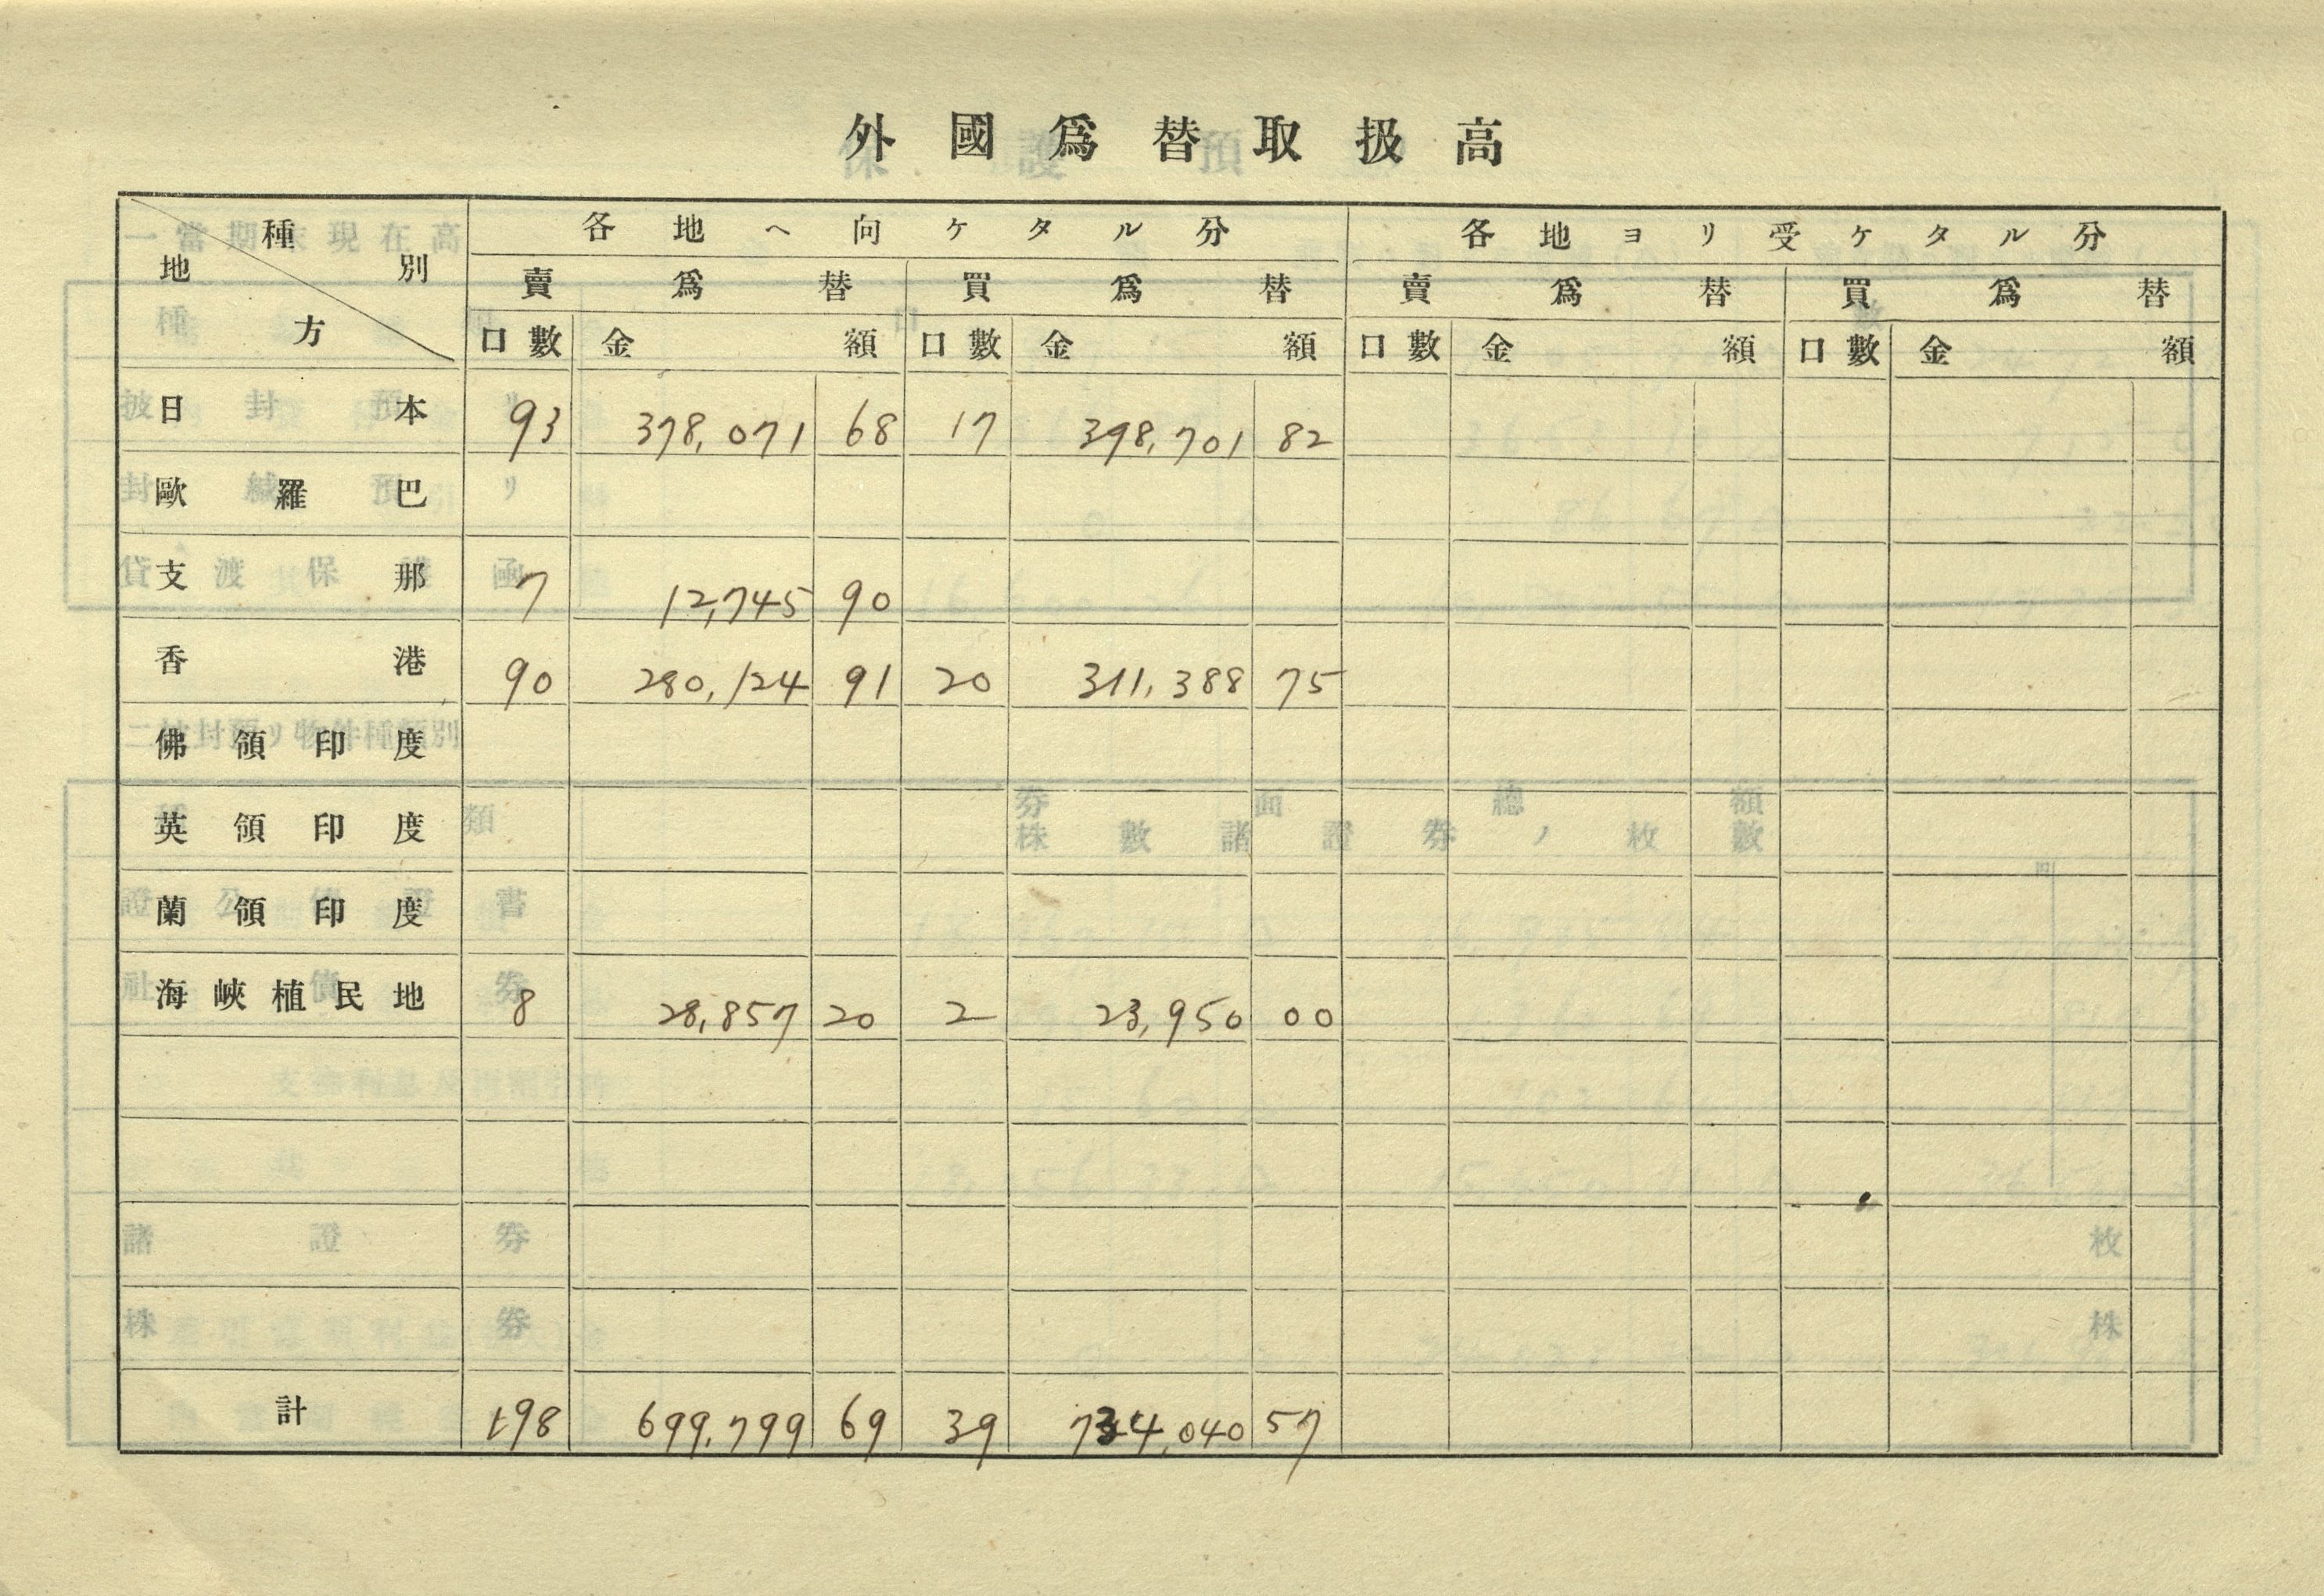 外國爲替取扱高
種別 地方 各地ヘ向ケタル分 各地ヨリ受ケタル分
賣爲替 買爲替 賣爲替 買爲替
口數 金額 口數 金額 口數 金額 口數 金額
日本 93 378,071 68 17 398,701 82
歐羅巴
支那 7 12,745 90
香港 90 280,124 91 20 311,388 75
佛領印度
英領印度
蘭領印度
海峽植民地 8 28,857 20 2 23,950 00
計 198 699,799 69 39 734,040 57